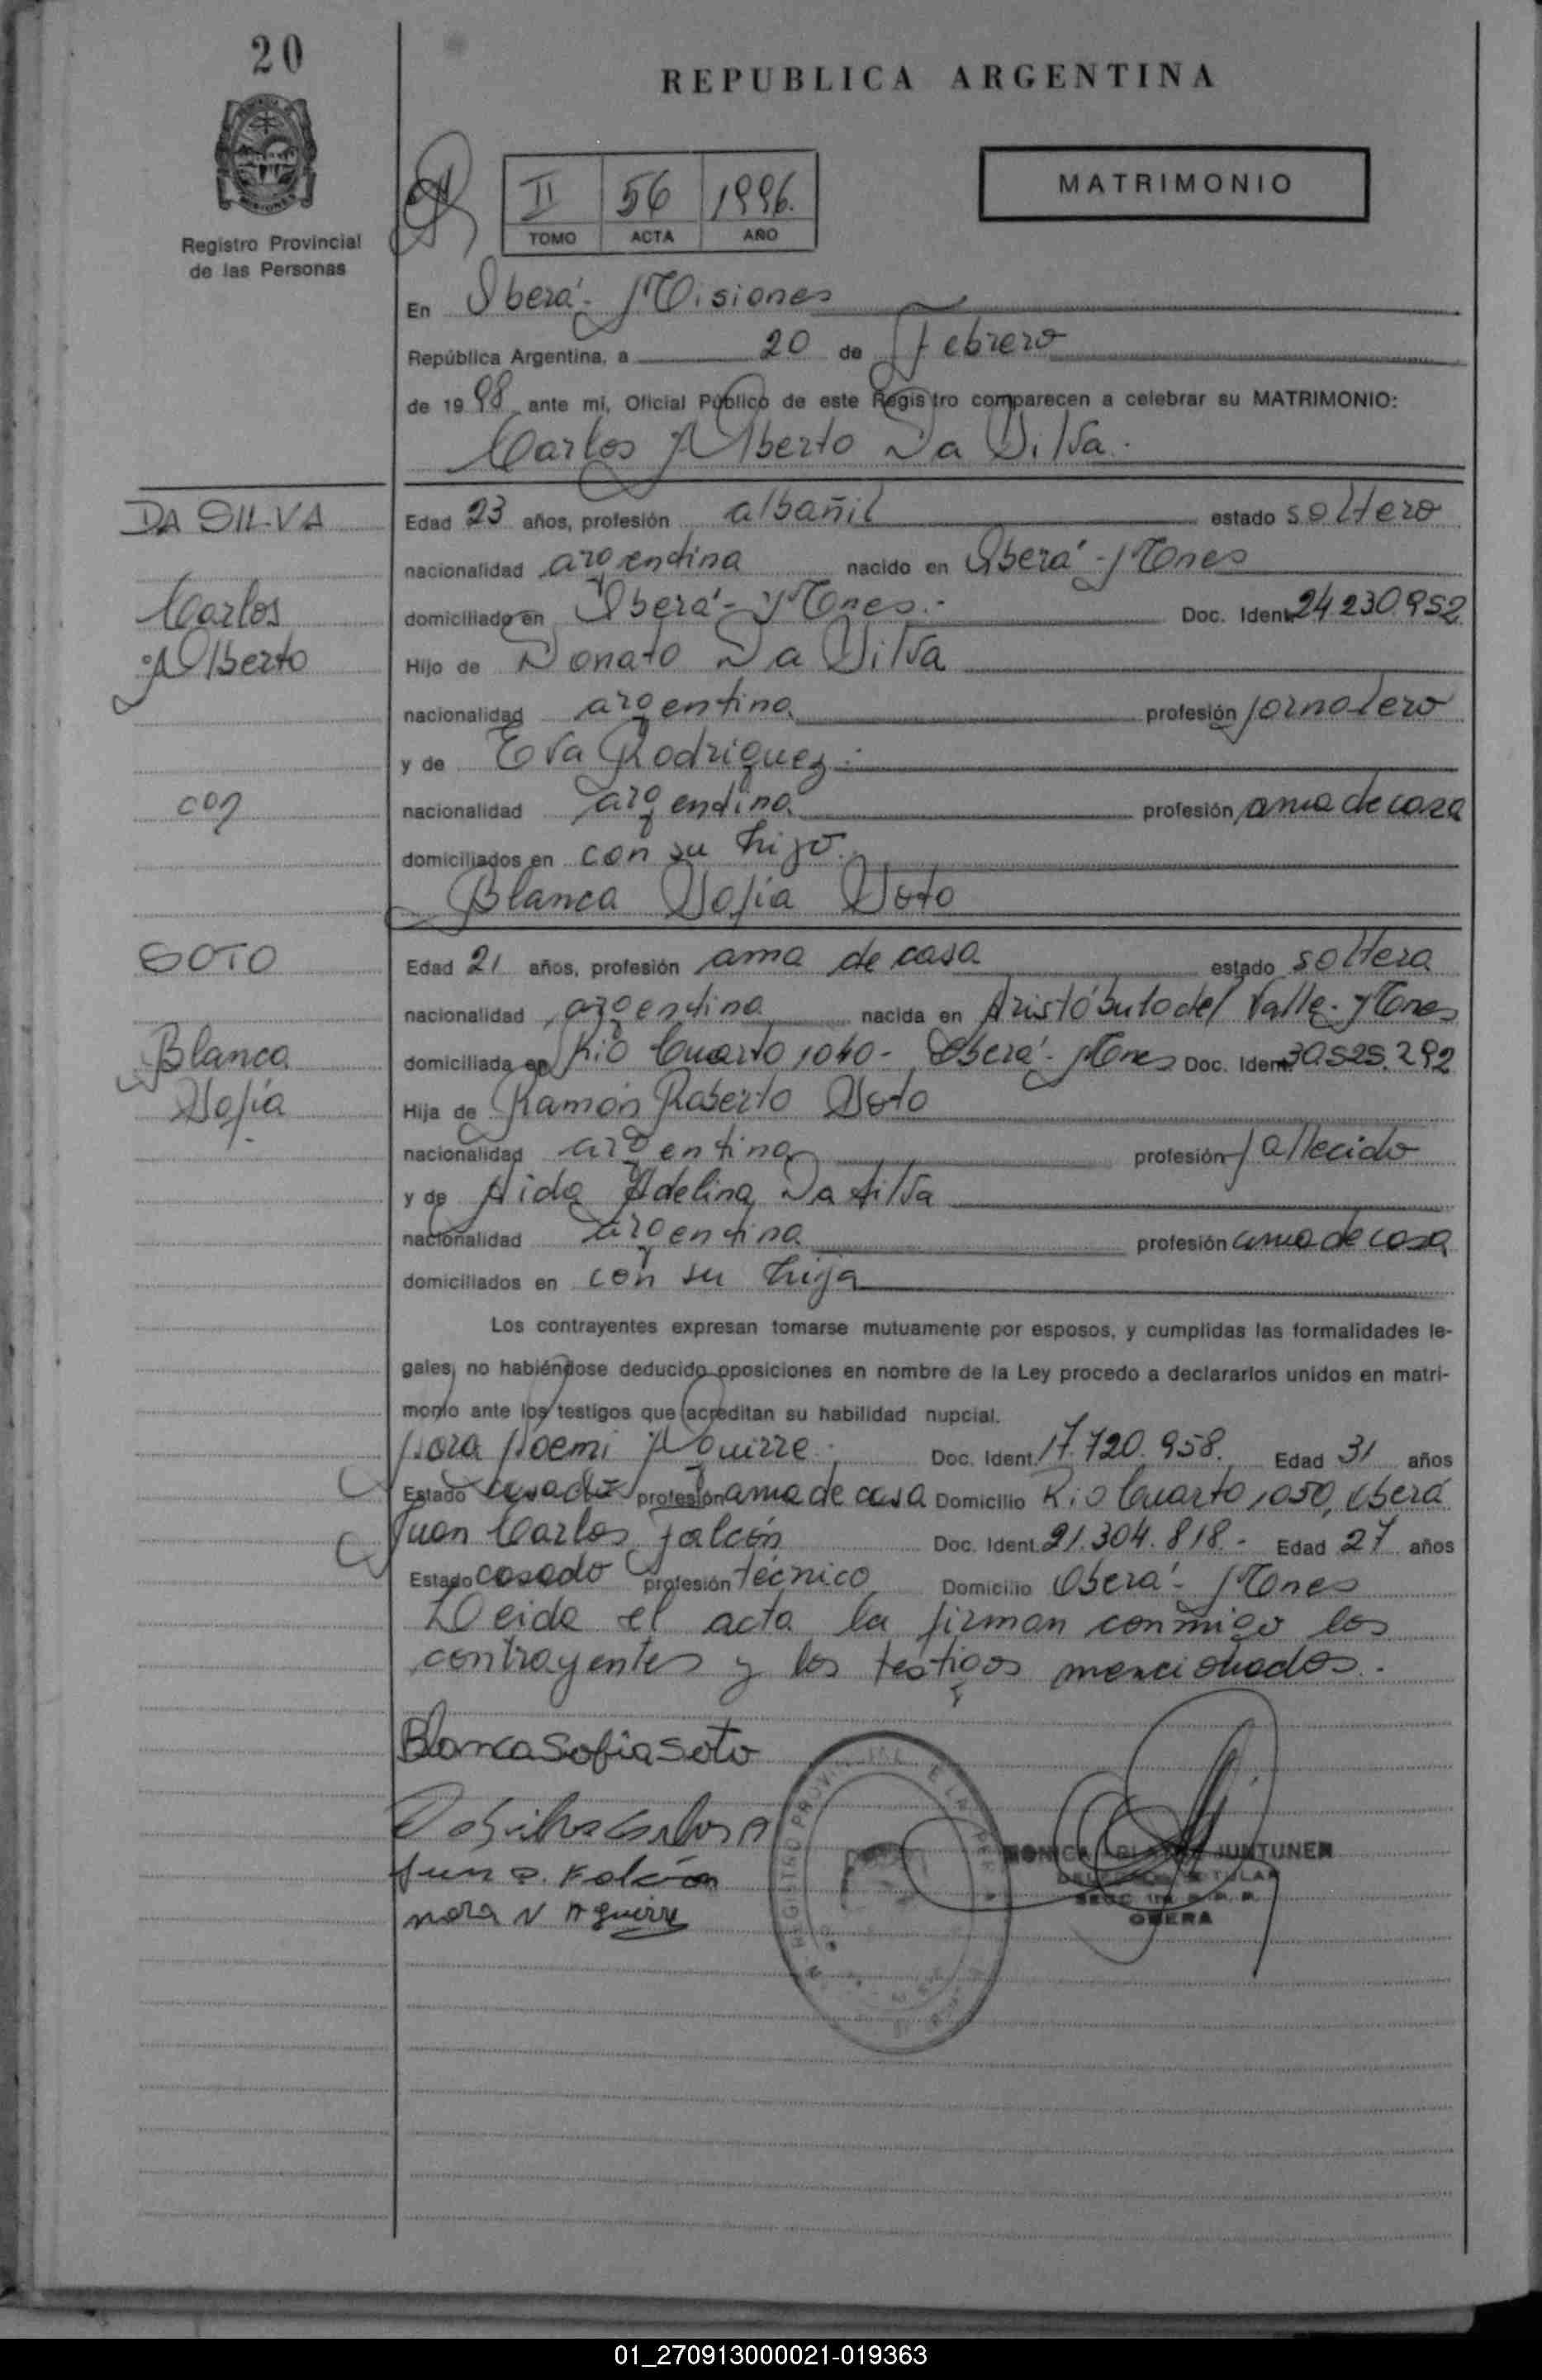 20
REPUBLICA ARGENTINA
Registro Provincial
de las Personas
II 56 1996.
TOMO ACTA AÑO
MATRIMONIO
En Oberá - Misiones
República Argentina, a 20 de Febrero
de 1998 ante mí, Oficial Público de este Registro comparecen a celebrar su MATRIMONIO:
Carlos Alberto Da Silva.
DA SILVA
Carlos
Alberto
con
SOTO
Blanca
Sofia
Edad 23 años, profesión albañil estado soltero
nacionalidad argentina nacido en Oberá - Mnes
domiciliado en Oberá - Mnes.- Doc. Ident. 24.230.952
Hijo de Donato Da Silva
nacionalidad argentina profesión jornalero
y de Eva Rodriguez.
nacionalidad argentina profesión ama de casa
domiciliados en con su hijo.
Blanca Sofia Soto
Edad 21 años, profesión ama de casa estado soltera
nacionalidad argentina nacida en Aristóbulo del Valle - Mnes
domiciliada en Rio Cuarto 1040 - Oberá - Mnes Doc. Ident. 30.525.292
Hija de Ramón Roberto Soto
nacionalidad argentina profesión fallecido
y de Aida Adelina Da Silva
nacionalidad argentina profesión ama de casa
domiciliados en con su hija
Los contrayentes expresan tomarse mutuamente por esposos, y cumplidas las formalidades le-
gales, no habiéndose deducido oposiciones en nombre de la Ley procedo a declararlos unidos en matri-
monio ante los testigos que acreditan su habilidad nupcial.
Nora Noemi Aguirre. Doc. Ident. 17.720.958. Edad 31 años
Estado casada profesión ama de casa Domicilio Rio Cuarto 1050, Oberá
Juan Carlos Falcón Doc. Ident. 21.304.818.- Edad 27 años
Estado casado profesión técnico Domicilio Oberá - Mnes
Leida el acta la firman conmigo los
contrayentes y los testigos mencionados.
Blanca Sofia Soto
Da Silva Carlos A
Juan C. Falcón
Nora N Aguirre
MONICA JUNTUNEN
TITULAR
OBERA
01_270913000021-019363